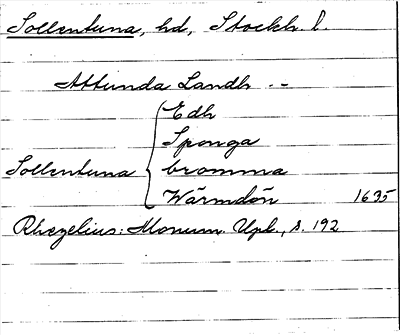 Sollentuna, hd, Stockh. l.
Attunda Landh --
Edh
Sponga
Sollentuna { bromma
Wärmdön 1635
Rhezelius: Monum. Upl., s. 192